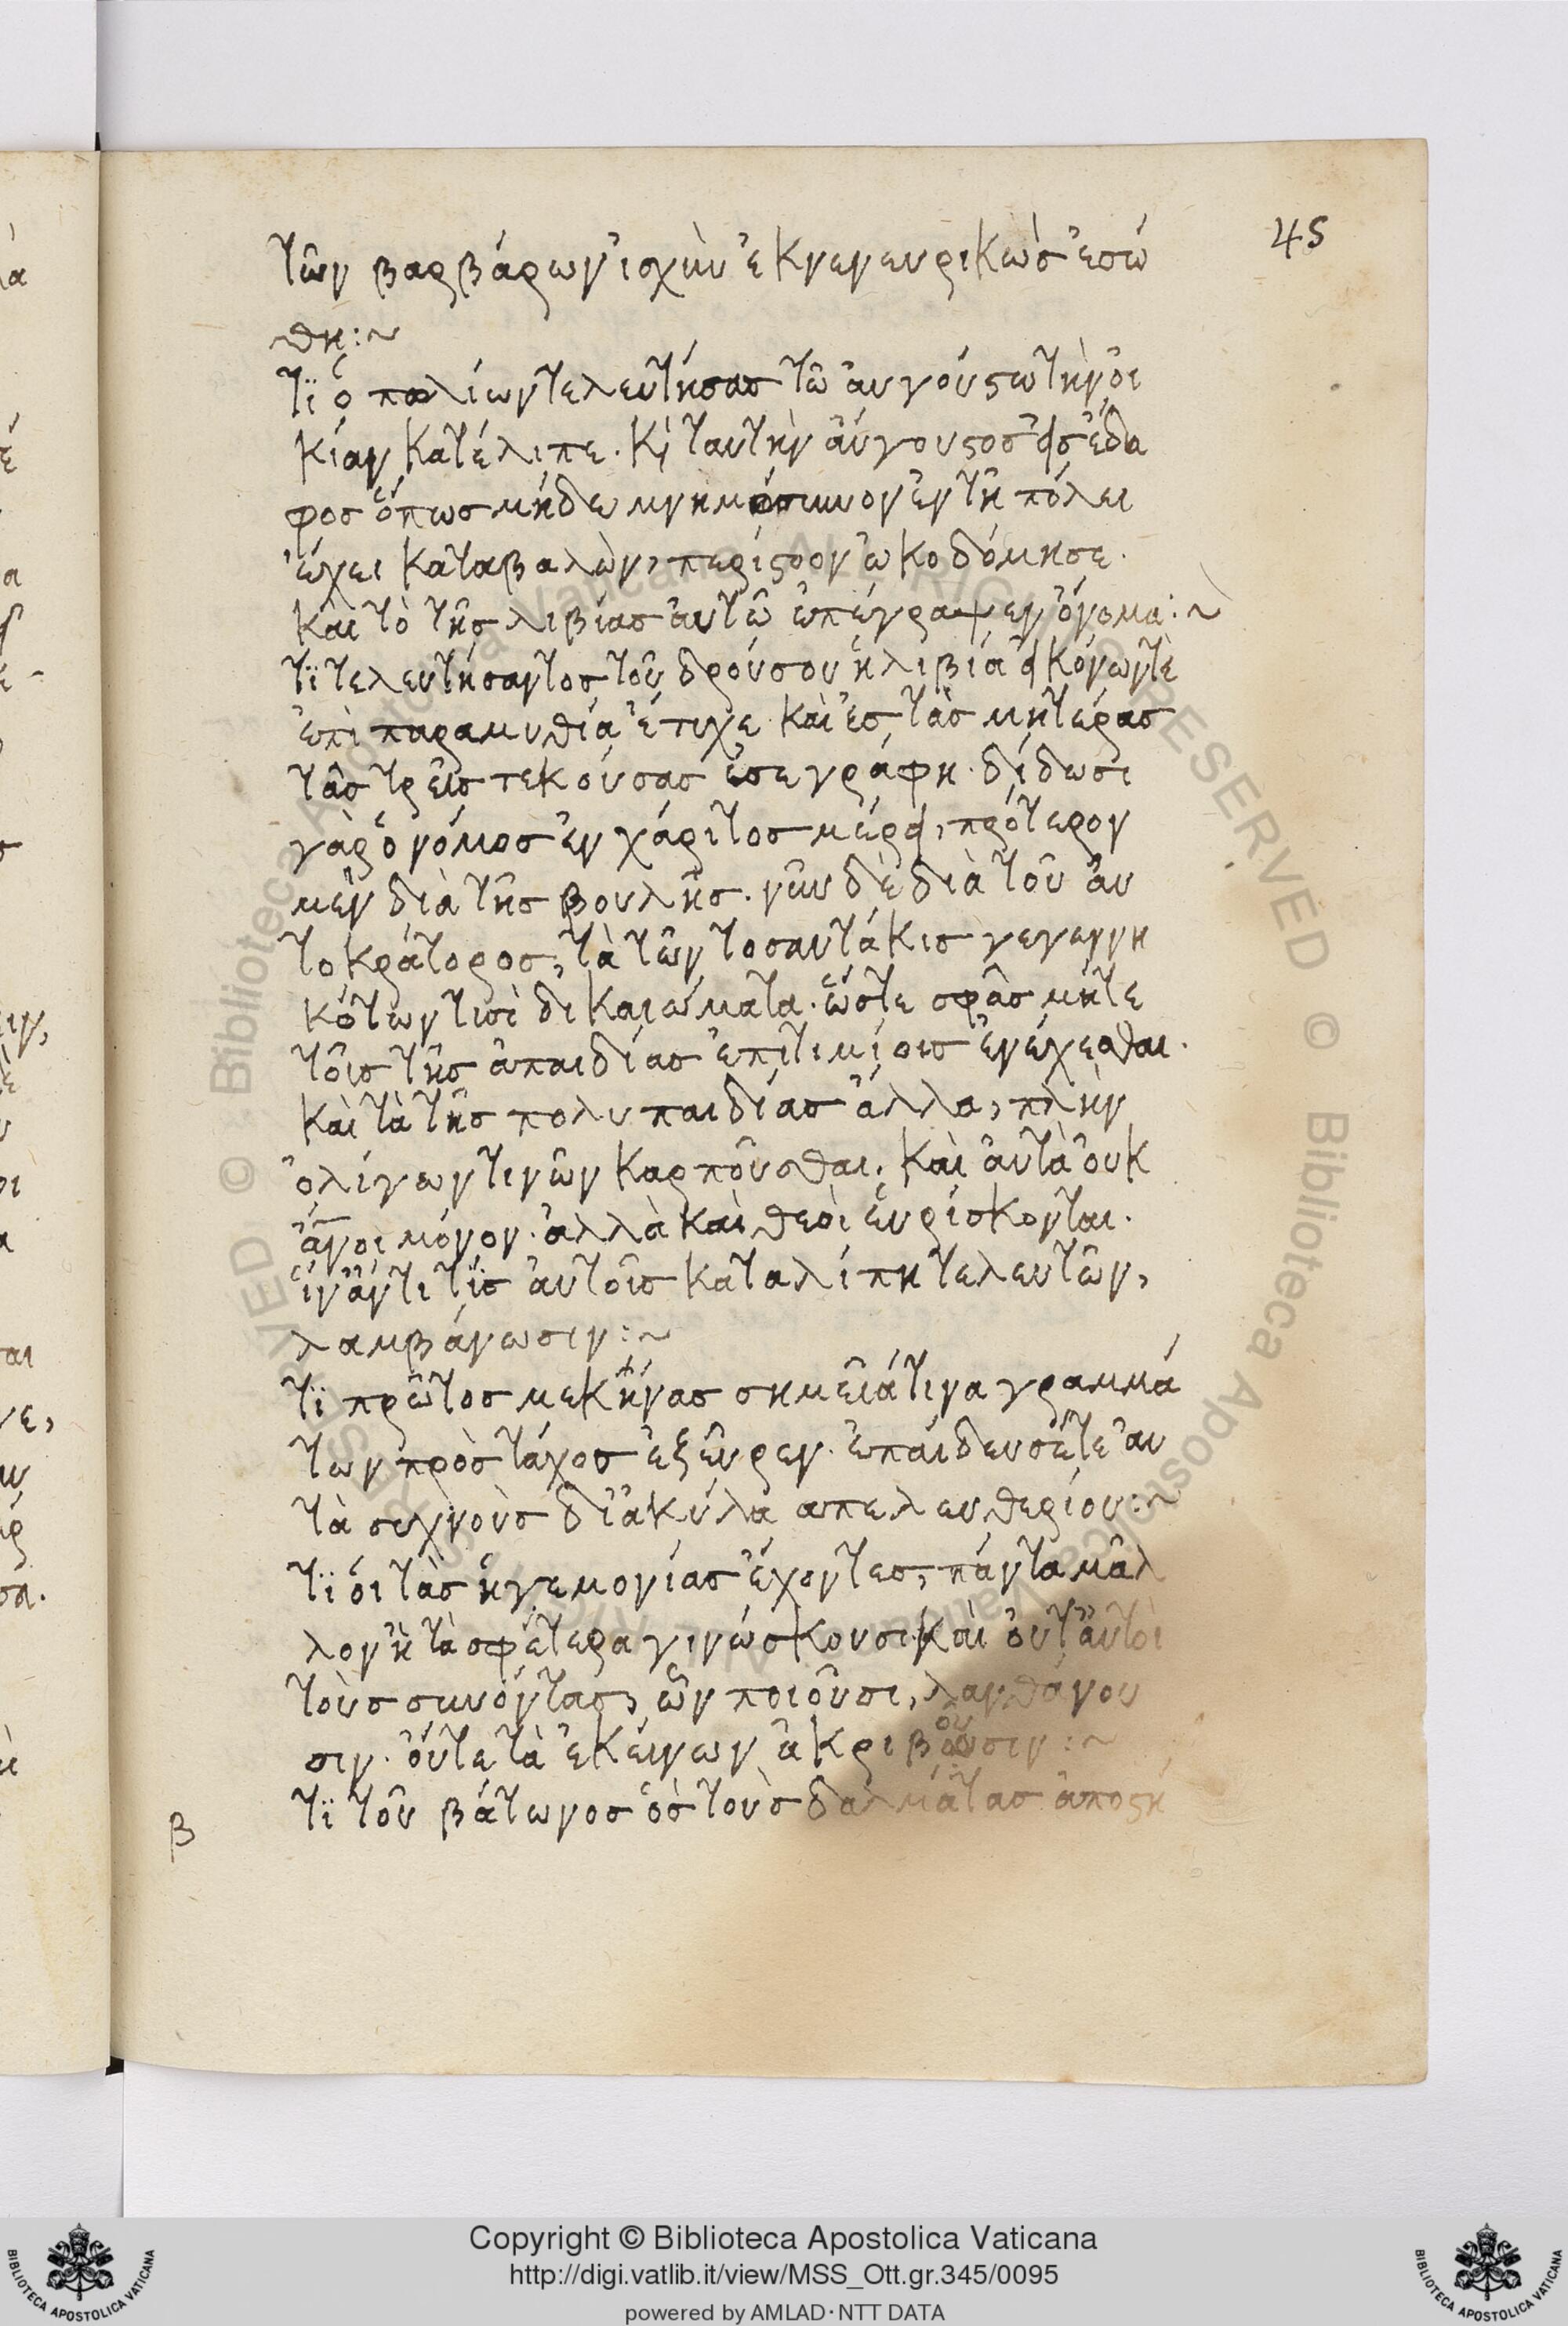 45
τῶν βαρβάρων ἰσχὺν ἐκνενευρικὼς ἐσώ
θη:~
τϊ ὁ πολίων τελευτήσας τῶ ἀυγούστω τὴν ὀι
κίαν κατέλιπε. κ̀ ταυτὴν ἀύγουστος ἐσ ἔδα
φος ὅπως μήδε μνημόσυνον ἐν τῆ πόλει
ἔχει καταβαλὼν, περίστοον ὠκοδόμησε.
καὶ τὸ τῆς λιβίας ἀυτῶ ἐπέγραψεν ὄνομα:~
τϊ τελευτήσαντος τοῦ δρούσου ἡ λιβία εἰκόνων τὲ
ἐπὶ παραμυθία ἔτυχε καὶ ἐσ τὰς μητέρας
τὰς τρεῖς τεκούσας ἐσεγράφη. δίδωσι
γὰρ ὁ νόμος ἐν χάριτος μέρει, πρότερον
μὲν διὰ τῆς βουλῆς. νῦν δὲ διὰ τοῦ ἀυ
τοκράτορος, τὰ τῶν τοσαυτάκις γεγεννη
κότων τισὶ δικαιώματα. ὥστε σφᾶς μήτε
τοῖς τῆς ἀπαιδίας ἐπιτιμίοις ἐνέχεσθαι.
καὶ τὰ τῆς πολυπαιδίας ἄλλα, πλὴν
ὀλίγων τινῶν καρποῦσθαι. καὶ ἀυτὰ ὀυκ
ἄνοι μόνον. ἀλλὰ καὶ θεοὶ ἑυρίσκονται.
ἵν ἄν τι τῒς ἀυτοῖς καταλίπη τελευτῶν,
λαμβάνωσιν:~
τϊ πρῶτος μεκήνας σημεῖά τινα γραμμά
των πρὸς τάχος ἐξεῦρεν. ἐπάιδευσέ τε ἀυ
τὰ συχνοὺς δι ἀκύλα απελευθερίου:~
τϊ ὁι τὰς ἡγεμονίας ἔχοντες, πάντα μᾶλ
λον ἢ τὰ σφέτερα γινώσκουσι. καὶ ὀυτ ἀυτοὶ
τοὺς συνόντας, ὧν ποιοῦσι, λανθάνου
σιν. ὄυτε τὰ ἐκείνων ἀκριβοῦσιν:~
τϊ τοῦ βάτωνος ὃς τοὺς δαλμάτας ἀποστή
β
Copyright © Biblioteca Apostolica Vaticana
http://digi.vatlib.it/view/MSS_Ott.gr.345/0095
powered by AMLAD·NTT DATA